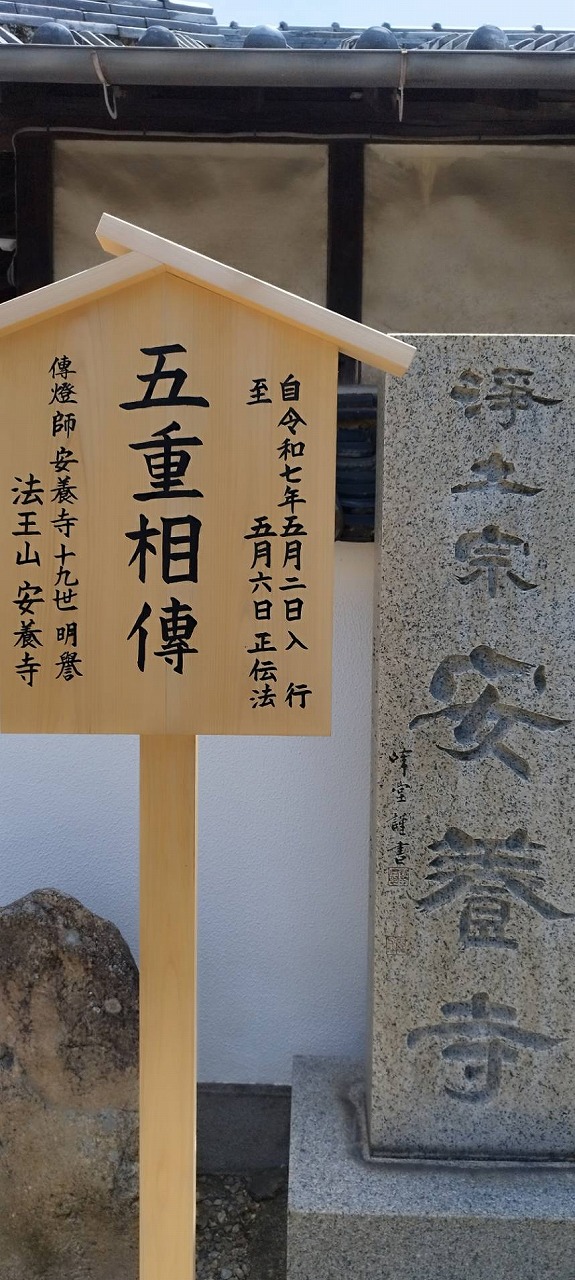 自令和七年五月二日入行
至 五月六日正伝法
五重相傳
傳燈師安養寺十九世明譽
法王山安養寺
淨土宗安養寺
峰堂謹書